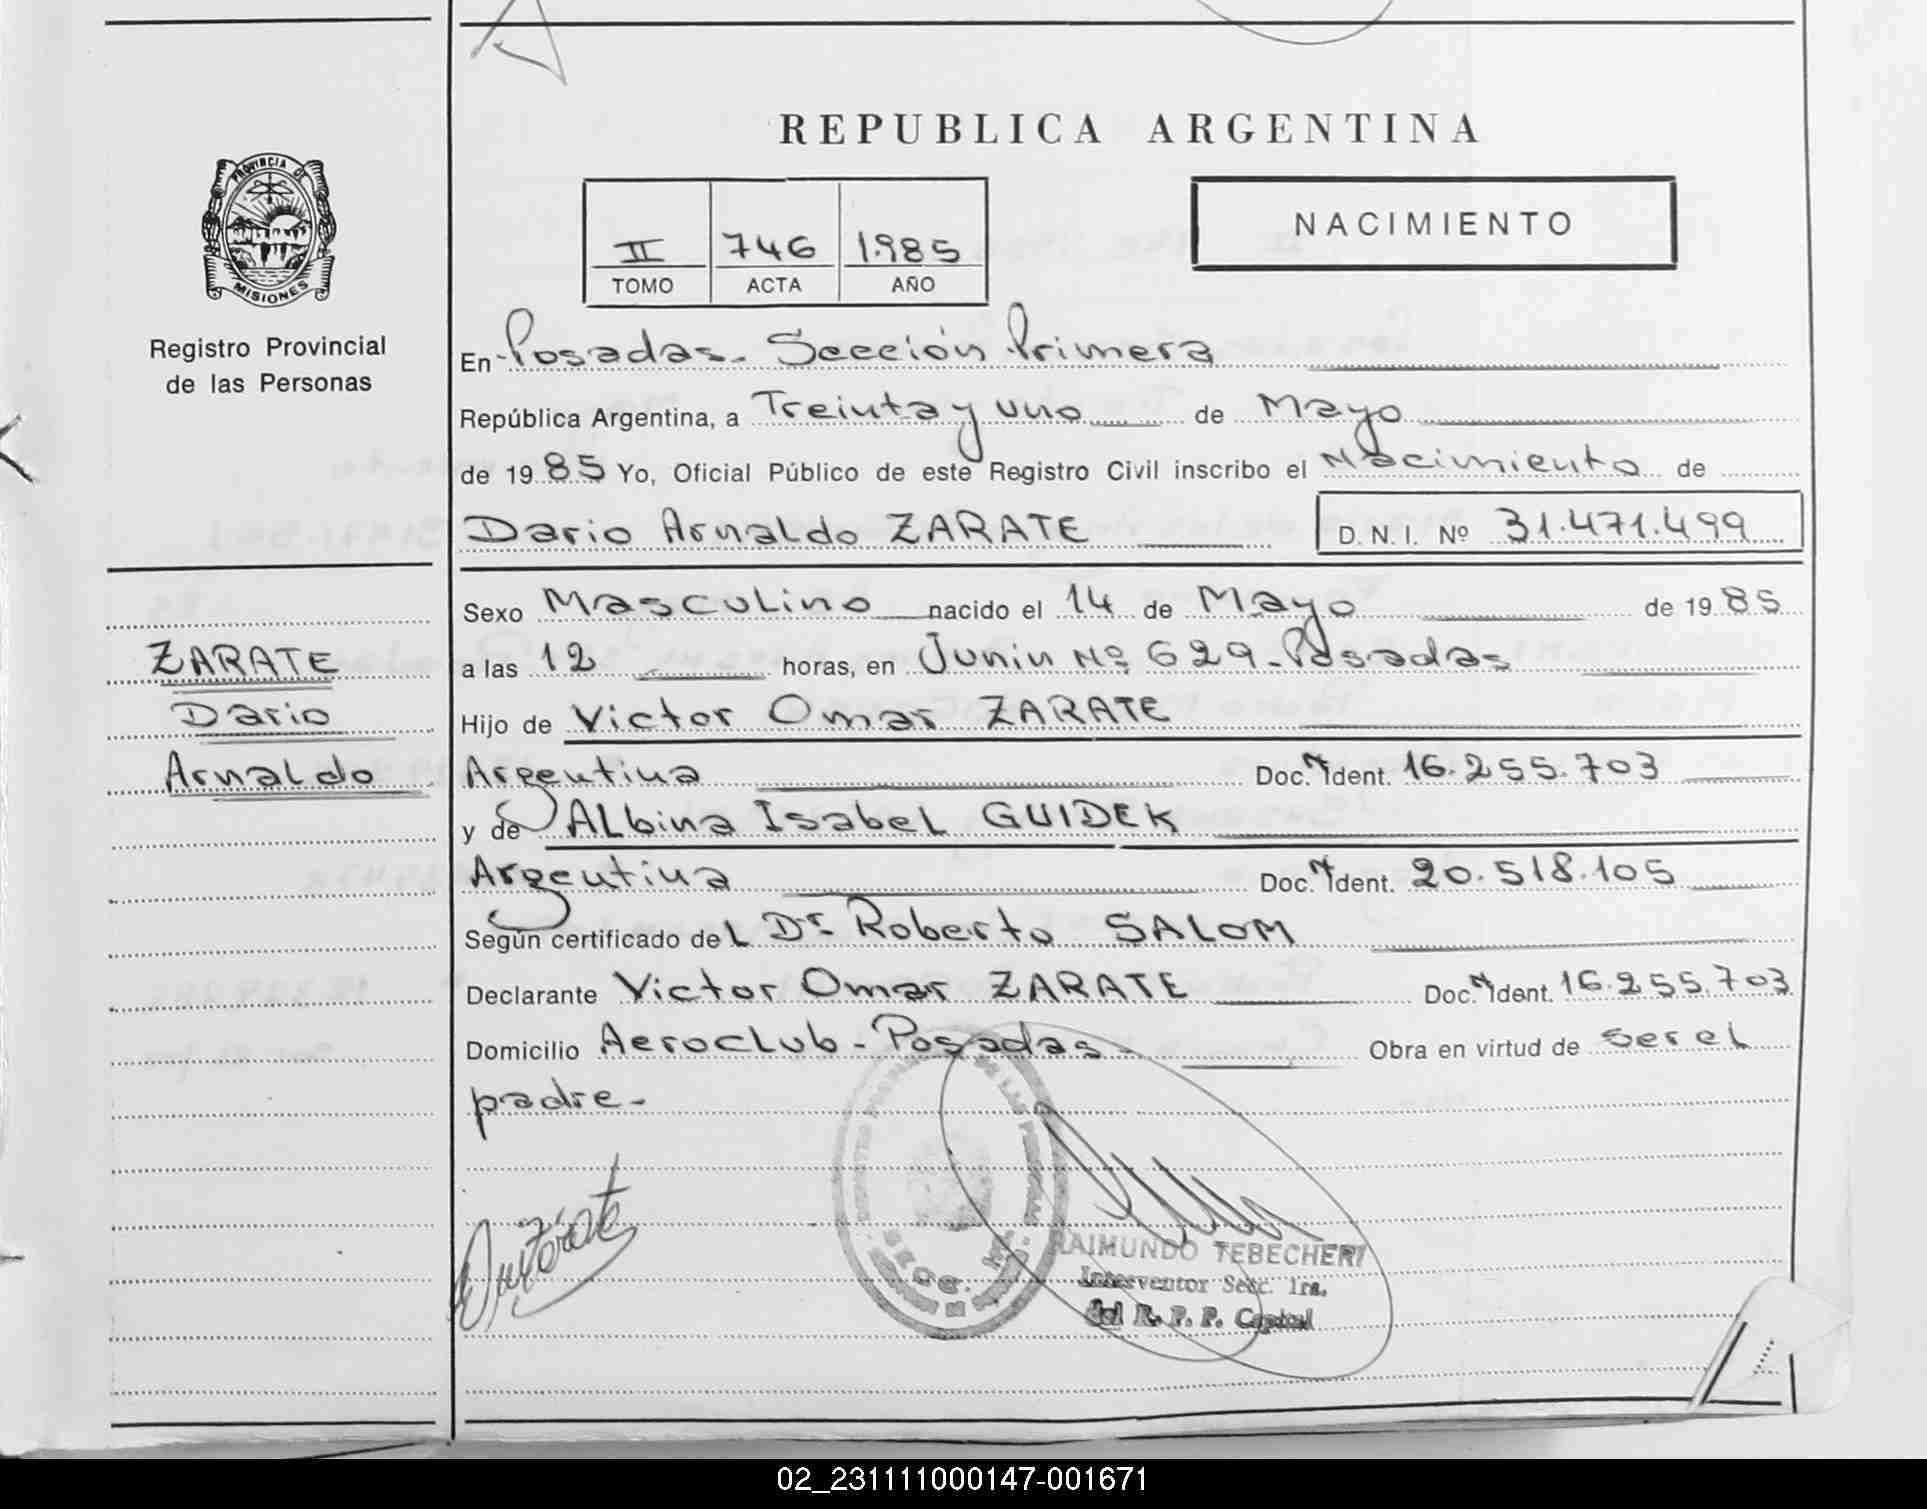 REPUBLICA ARGENTINA
PROVINCIA DE
MISIONES
Registro Provincial
de las Personas
II 746 1.985
TOMO ACTA AÑO
NACIMIENTO
En Posadas. Sección Primera
República Argentina, a Treinta y uno de Mayo
de 1985 Yo, Oficial Público de este Registro Civil inscribo el Nacimiento de
Dario Arnaldo ZARATE D. N. I. Nº 31.471.499
Sexo Masculino nacido el 14 de Mayo de 1985
ZARATE
Dario
Arnaldo
a las 12 horas, en Junin Nº 629. Posadas
Hijo de Victor Omar ZARATE
Argentina Doc. N Ident. 16.255.703
y de Albina Isabel GUIDEK
Argentina Doc. N Ident. 20.518.105
Según certificado del Dr. Roberto SALOM
Declarante Victor Omar ZARATE Doc. N Ident. 16.255.703
Domicilio Aeroclub - Posadas - Obra en virtud de ser el
padre.-
Zárate
RAIMUNDO TEBECHERI
Interventor Secc. 1ra.
del R. P. P. Capital
02_231111000147-001671